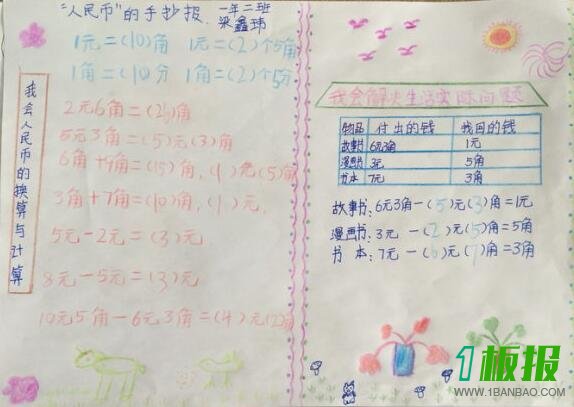 "人民币"的手抄报
一年二班
梁鑫玮
1元=(10)角 1元=(2)个5角
1角=(10分 1角=(2)个5分
我会人民币的换算与计算
2元6角=(26)角
5元3角=(5)元(3)角
6角+9角=(15)角,(1)元(5)角
3角+7角=(10)角,(1)元.
5元-2元=(3)元
8元-5元=(3)元
10元5角-6元3角=(4)元(2)角
我会解决生活实际问题
物品 付出的钱 找回的钱
故事书 6元3角 1元
漫画书 3元 5角
书本 7元 3角
故事书:6元3角-(5)元(3)角=1元
漫画书:3元-(2)元(5)角=5角
书本:7元-(6)元(7)角=3角
1板报
WWW.1BANBAO.COM